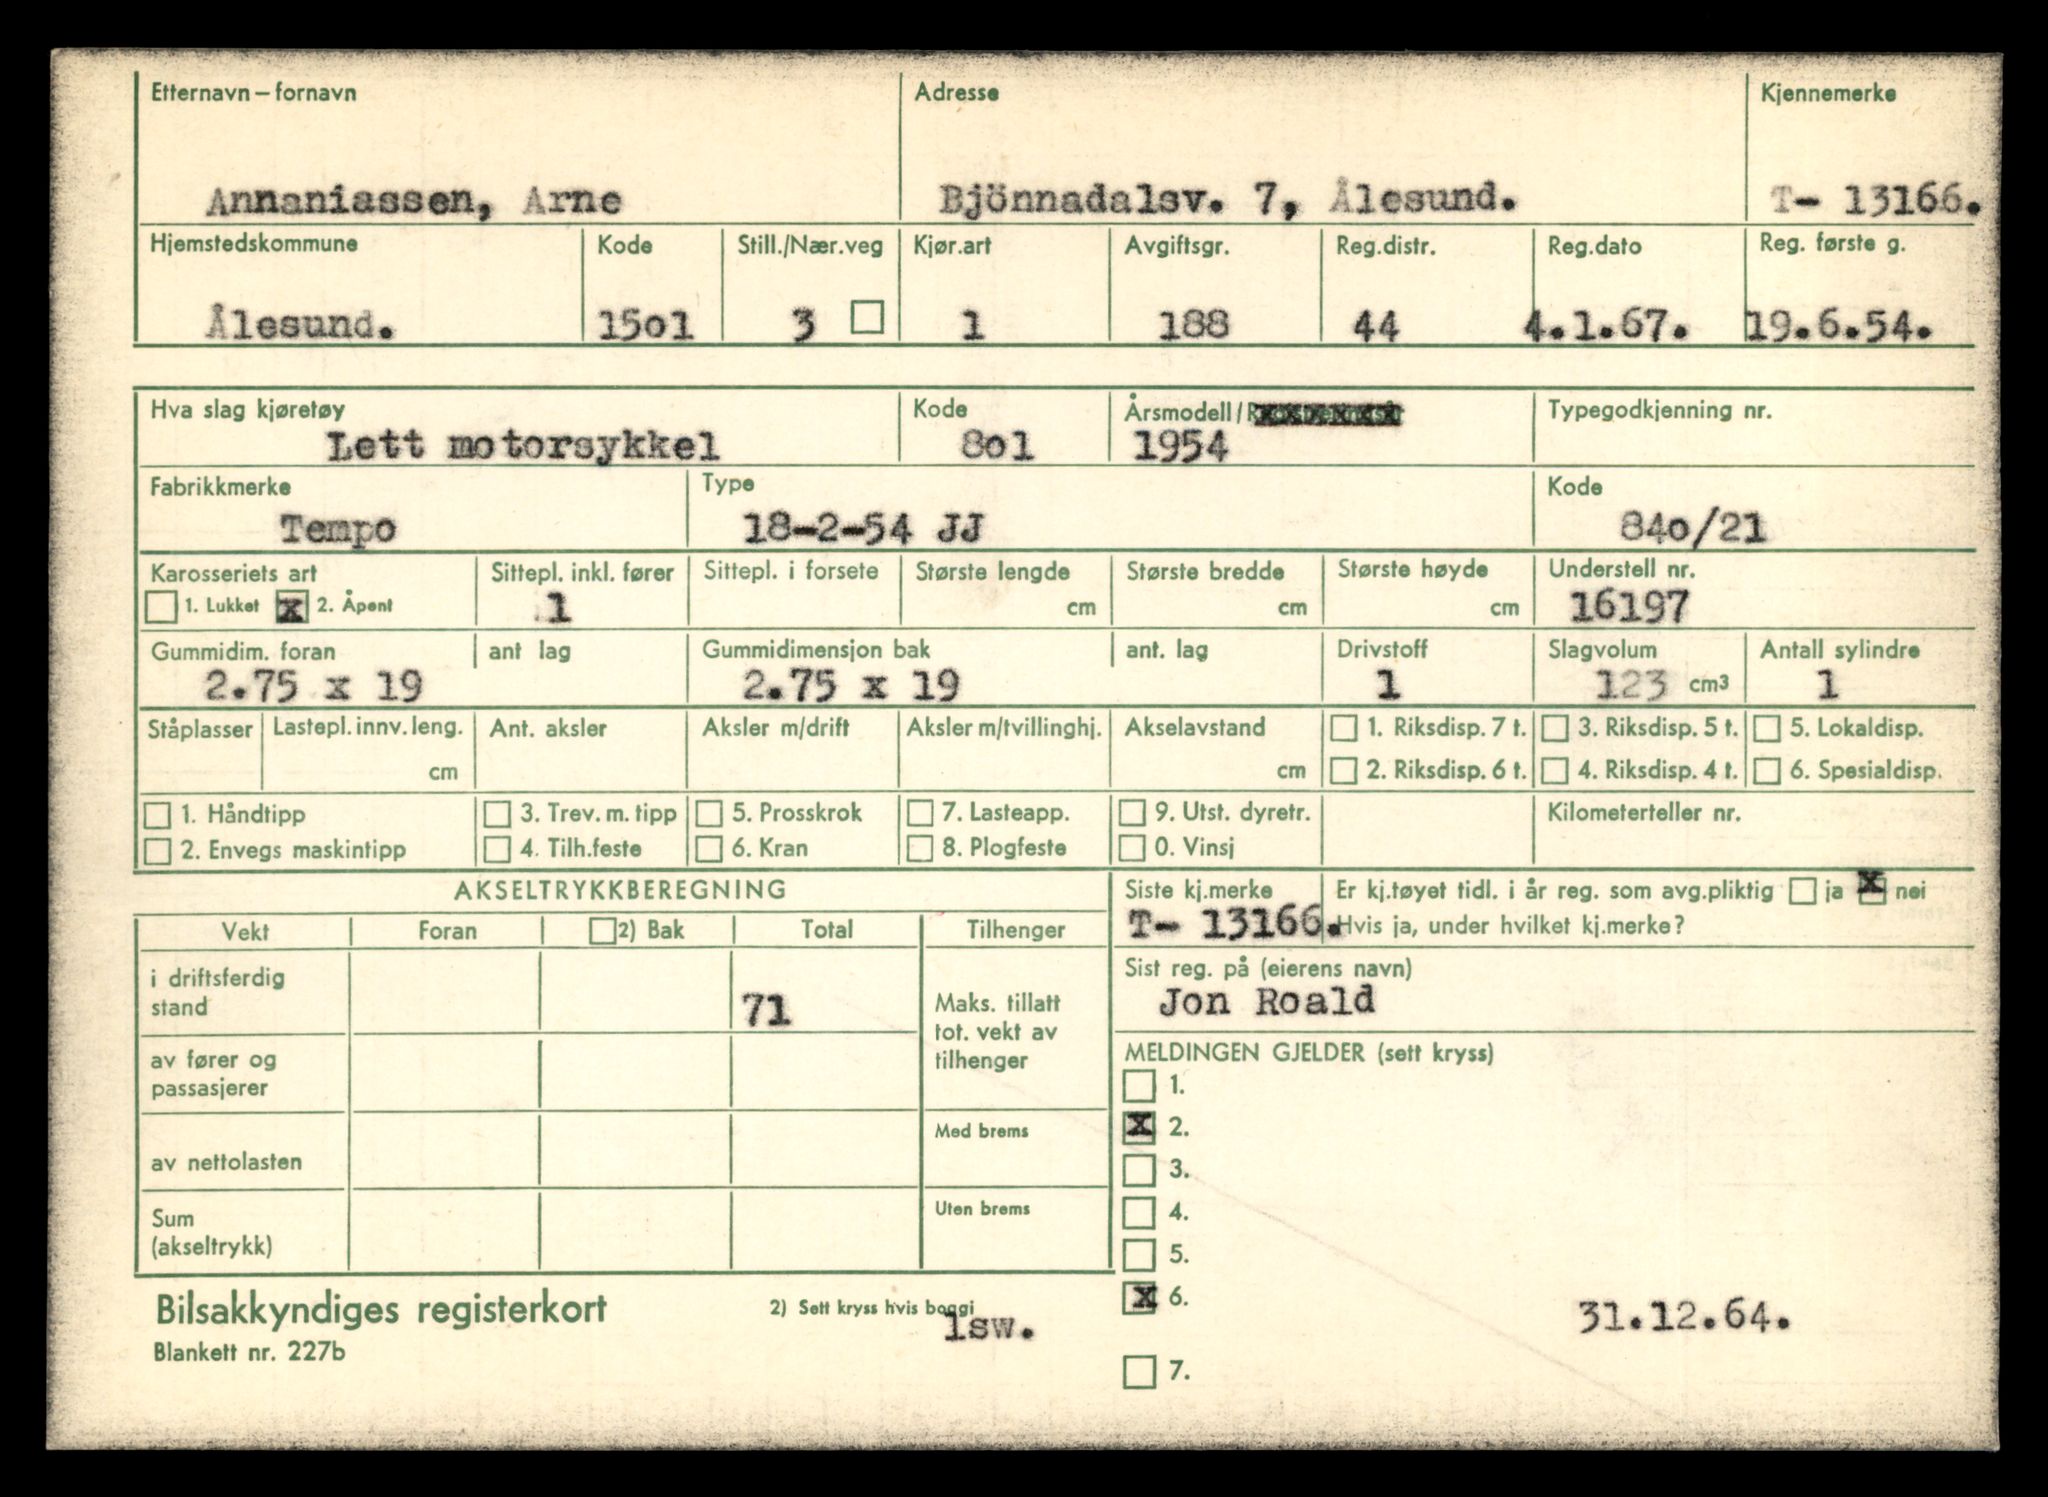 Etternavn – fornavn Adresse Kjennemerke
Annaniassen, Arne Bjönnadalsv. 7, Ålesund. T- 13166.
Hjemstedskommune Kode Still./Nær.veg Kjør.art Avgiftsgr. Reg.distr. Reg.dato Reg. første g.
Ålesund. 15o1 3 1 188 44 4.1.67. 19.6.54.
Hva slag kjøretøy Kode Årsmodell/ Typegodkjenning nr.
Lett motorsykkel 8o1 1954
Fabrikkmerke Type Kode
Tempo 18-2-54 JJ 84o/21
Karosseriets art Sittepl. inkl. fører Sittepl. i forsete Største lengde Største bredde Største høyde Understell nr.
1. Lukket x 2. Åpent 1 cm cm cm 16197
Gummidim. foran ant lag Gummidimensjon bak ant. lag Drivstoff Slagvolum Antall sylindre
2.75 x 19 2.75 x 19 1 123 cm3 1
Ståplasser Lastepl. innv. leng. Ant. aksler Aksler m/drift Aksler m/tvillinghj. Akselavstand 1. Riksdisp. 7 t. 3. Riksdisp. 5 t. 5. Lokaldisp.
cm cm 2. Riksdisp. 6 t. 4. Riksdisp. 4 t. 6. Spesialdisp.
1. Håndtipp 3. Trev. m. tipp 5. Prosskrok 7. Lasteapp. 9. Utst. dyretr. Kilometerteller nr.
2. Envegs maskintipp 4. Tilh.feste 6. Kran 8. Plogfeste 0. Vinsj
AKSELTRYKKBEREGNING Siste kj.merke Er kj.tøyet tidl. i år reg. som avg.pliktig ja x nei
T- 13166. Hvis ja, under hvilket kj.merke?
Vekt Foran 2) Bak Total Tilhenger
Sist reg. på (eierens navn)
Jon Roald
i driftsferdig
stand 71
Maks. tillatt
tot. vekt av
tilhenger
av fører og
passasjerer
Med brems
av nettolasten
Uten brems
Sum
(akseltrykk)
MELDINGEN GJELDER (sett kryss)
1.
x 2.
3.
4.
5.
x 6. 31.12.64.
7.
Bilsakkyndiges registerkort 2) Sett kryss hvis boggi
lsw.
Blankett nr. 227b